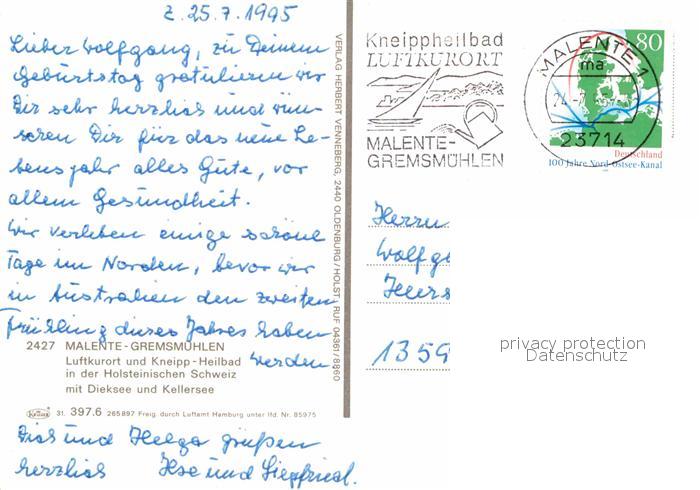 z. 25.7.1995
Lieber Wolfgang, zu Deinem
Geburtstag gratulieren wir
Dir sehr herzlich und wün-
schen Dir für das neue Le-
bensjahr alles Gute, vor
allem Gesundheit.
Wir verleben einige schöne
Tage im Norden, bevor wir
in Australien den zweiten
Frühling dieses Jahres haben
werden
2427 MALENTE-GREMSMÜHLEN
Luftkurort und Kneipp-Heilbad
in der Holsteinischen Schweiz
mit Dieksee und Kellersee
Krüger 31. 397.6 265897 Freig. durch Luftamt Hamburg unter lfd. Nr. 85975
Dich und Helga grüßen
herzlich Ilse und Siegfried.
VERLAG HERBERT VENNEBERG, 2440 OLDENBURG/HOLST., RUF 04361/8860
Kneippheilbad
LUFTKURORT
MALENTE-
GREMSMÜHLEN
MALENTE 1
ma
23714
80
Deutschland
100 Jahre Nord-Ostsee-Kanal
Herrn
Wolfg
1359
privacy protection
Datenschutz